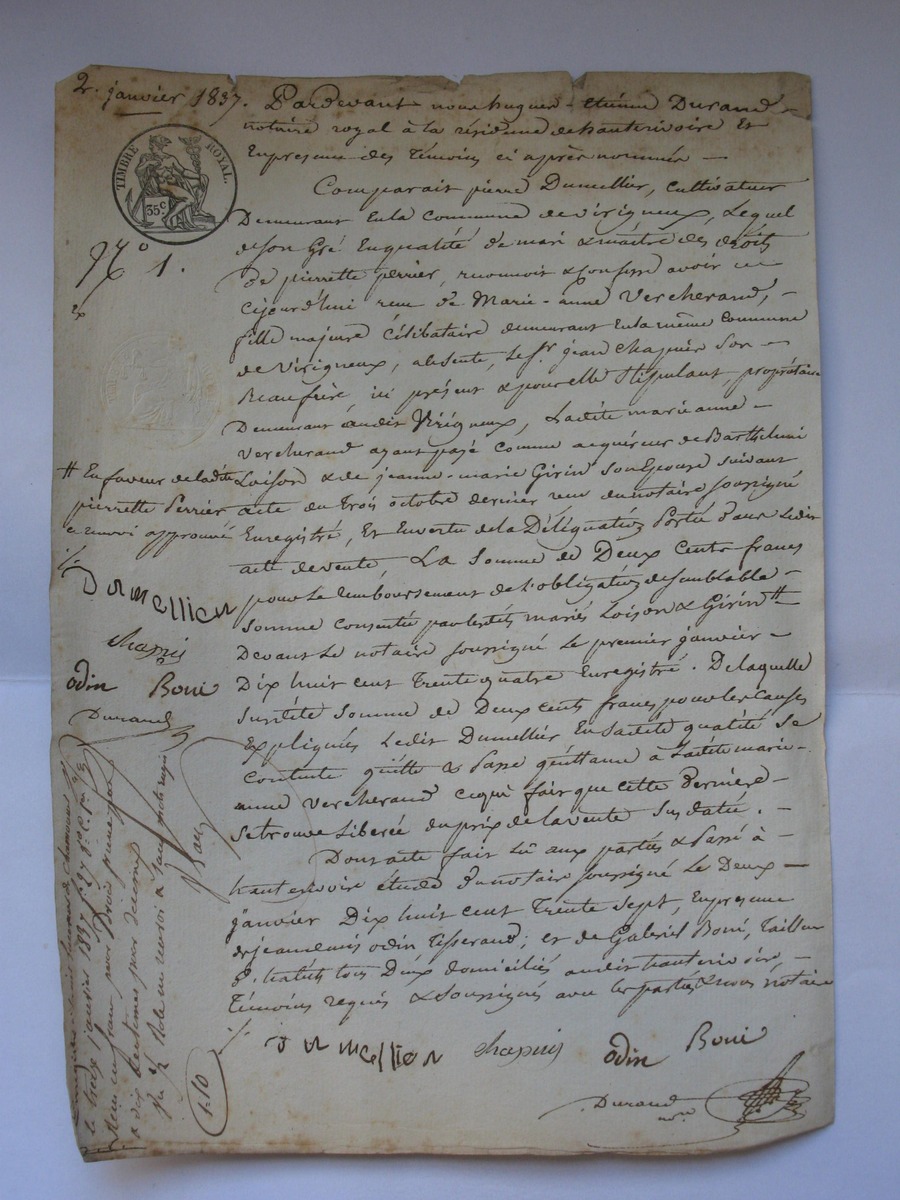 2. janvier 1837.
TIMBRE ROYAL
35c
N° 1.
Pardevant nous hugues-Etienne Durand
notaire royal à la résidence de hauterivoire Et
En présence des témoins ci après nommés —
Comparait pierre Dumellier, Cultivateur
Demeurant En la Commune de virigneux, Lequel
de son Gré En qualité de mari & maître des droits
de pierrette perrier, reconnoit & Confesse avoir
Cejourd'hui reçu de Marie-anne Vercherand,
fille majeure Célibataire demeurant En la même Commune
de Virigneux, absente, le Sr. jean Chapuis Son
Beaufrère ici présent & pour elle Stipulant, propriétaire
Demeurant audit Virigneux, Ladite marie anne
Vercherand ayant payé Comme acquéreur de Barthelmi
Loison & de jeanne-marie Girin Son Epouse suivant
acte du trois octobre dernier reçu du notaire soussigné
Enregistré, Et En vertu de la Délégation Portée dans Ledit
acte de vente, La Somme de Deux Cents francs
pour Le remboursement de l'obligation de Semblable
Somme Consentie par lesdits mariés Loison & Girin #
Devant Le notaire soussigné Le premier janvier
Dix huit cent trente quatre Enregistré. De laquelle
susdite Somme de Deux Cents francs pour les Causes
Expliquées Ledit Dumellier En Sadite qualité Se
Contente quitte & Passe quittance à Ladite marie-
anne Vercherand Ce qui fait que Cette Dernière
Se trouve Libérée du prix de la vente Susdatée. —
Dont acte fait Lû aux parties & Passé à
hauterivoire étude du notaire soussigné Le Deux
janvier Dix huit cent trente Sept, En présence
de jean odin tisserand, et de Gabriel Boni, tailleur
d'habits tous Deux domiciliés audit hauterivoire,
témoins requis & Soussignés avec les parties & nous notaire
Dumellier Chapuis odin Boni
Durand
nre
# En faveur de ladte
pierrette Perrier
ce renvoi approuvé
Dumellier
Chapuis
odin Boni
Durand
le treize janvier 1837 f° 27
& dix centimes pour décime
1.10